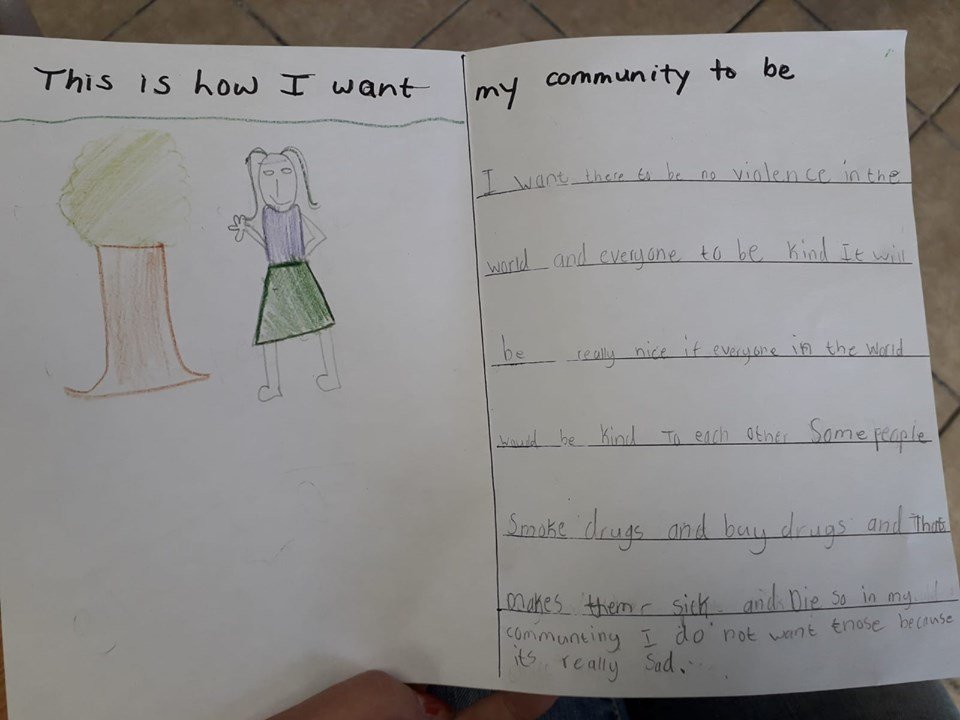 This is how I want my community to be
I want there to be no violence in the
world and everyone to be kind It will
be really nice if everyone in the world
would be kind To each other Some people
Smoke drugs and buy drugs and That
makes them sick and Die So in my
communting I do not want those because
its really Sad...